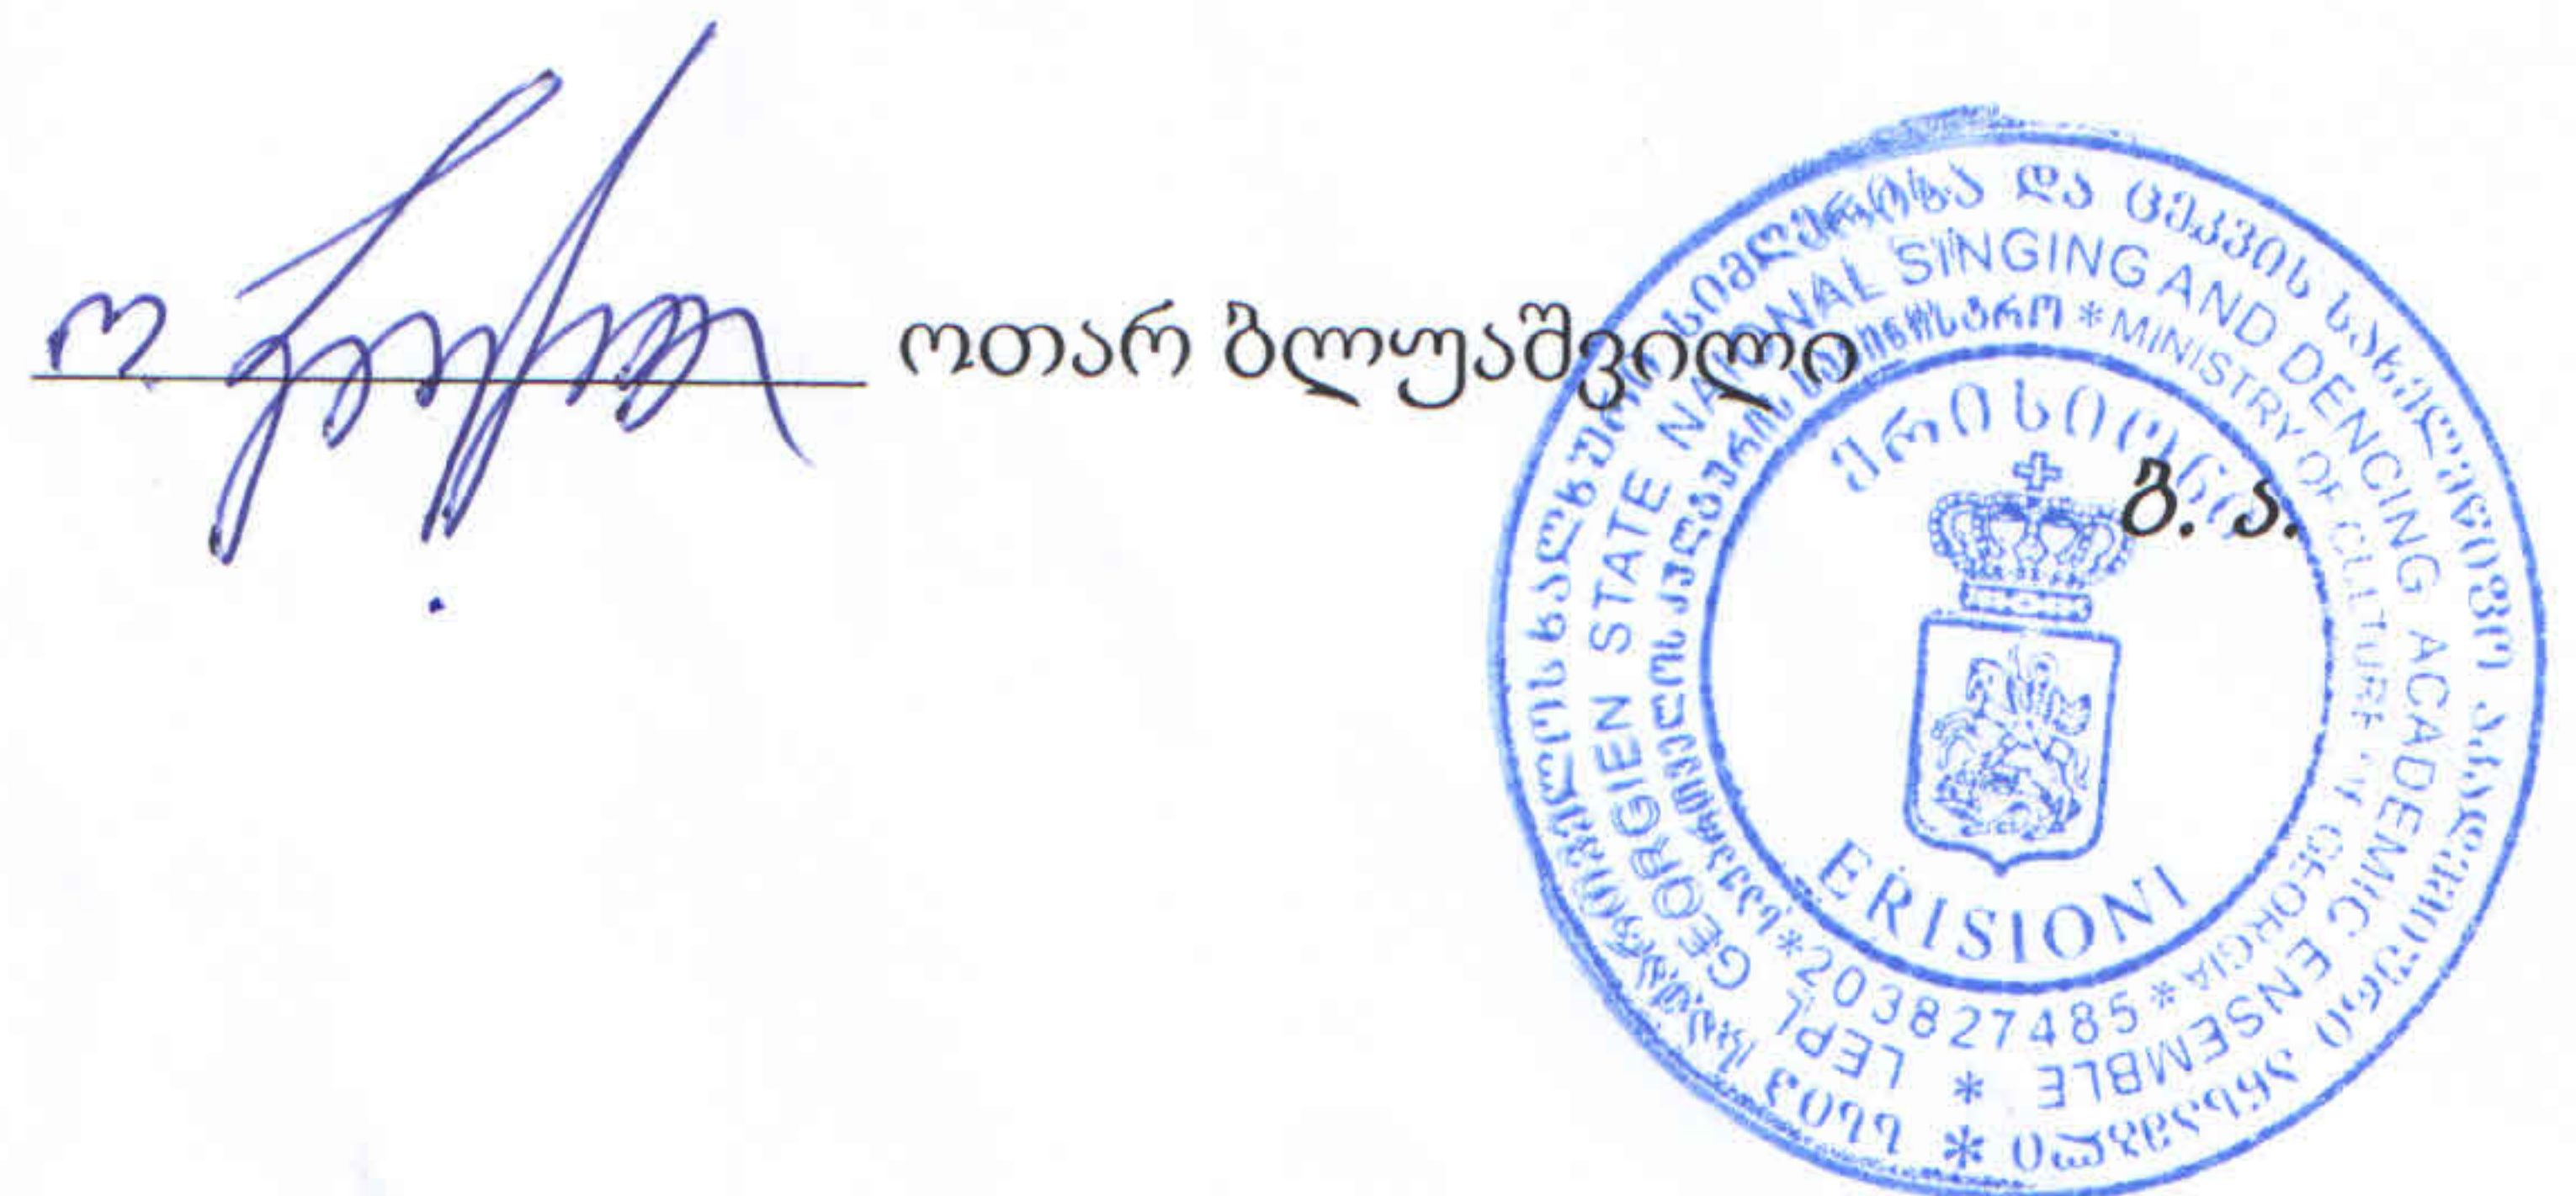 ოთარ ბლუაშვილი
ბ. ა.
სსიპ საქართველოს ხალხური სიმღერისა და ცეკვის სახელმწიფო აკადემიური ანსამბლი *
LEPL GEORGIEN STATE NATIONAL SINGING AND DENCING ACADEMIC ENSEMBLE *
საქართველოს კულტურის სამინისტრო * MINISTRY OF CULTURE OF GEORGIA * 203827485 *
ერისიონი
ERISIONI